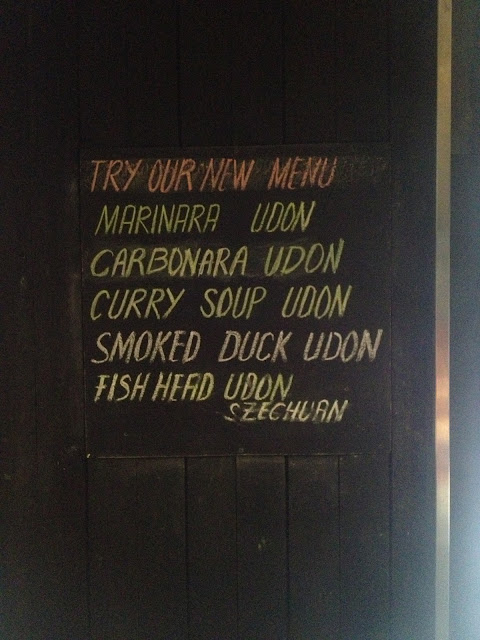 TRY OUR NEW MENU
MARINARA UDON
CARBONARA UDON
CURRY SOUP UDON
SMOKED DUCK UDON
FISH HEAD UDON
SZECHUAN